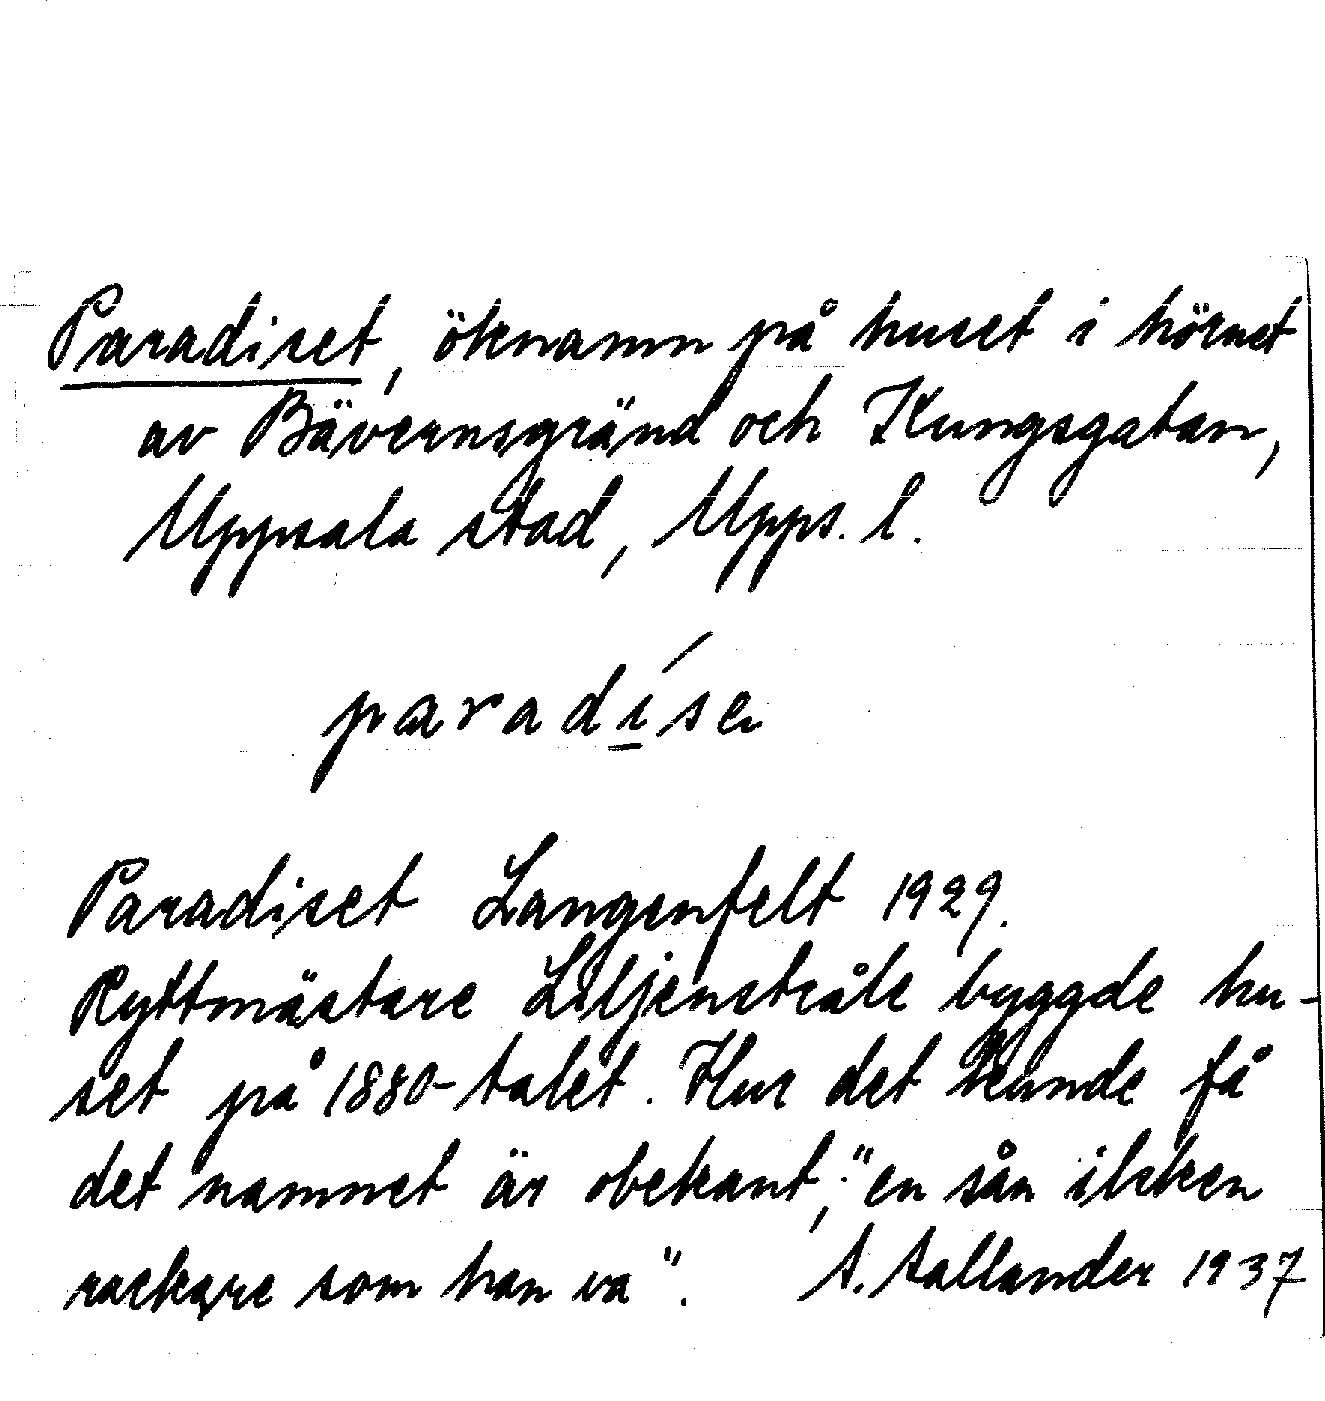 Paradiset, öknamn på huset i hörnet
av Bävernsgränd och Kungsgatan,
Uppsala stad, Upps. l.
paradí̱sɐ
Paradiset Langenfelt 1929.
Ryttmästare Liljenstråle byggde hu-
set på 1880-talet. Hur det kunde få
det namnet är obekant, "en sån ilsken
rackare som han va".
A. Aallander 1937